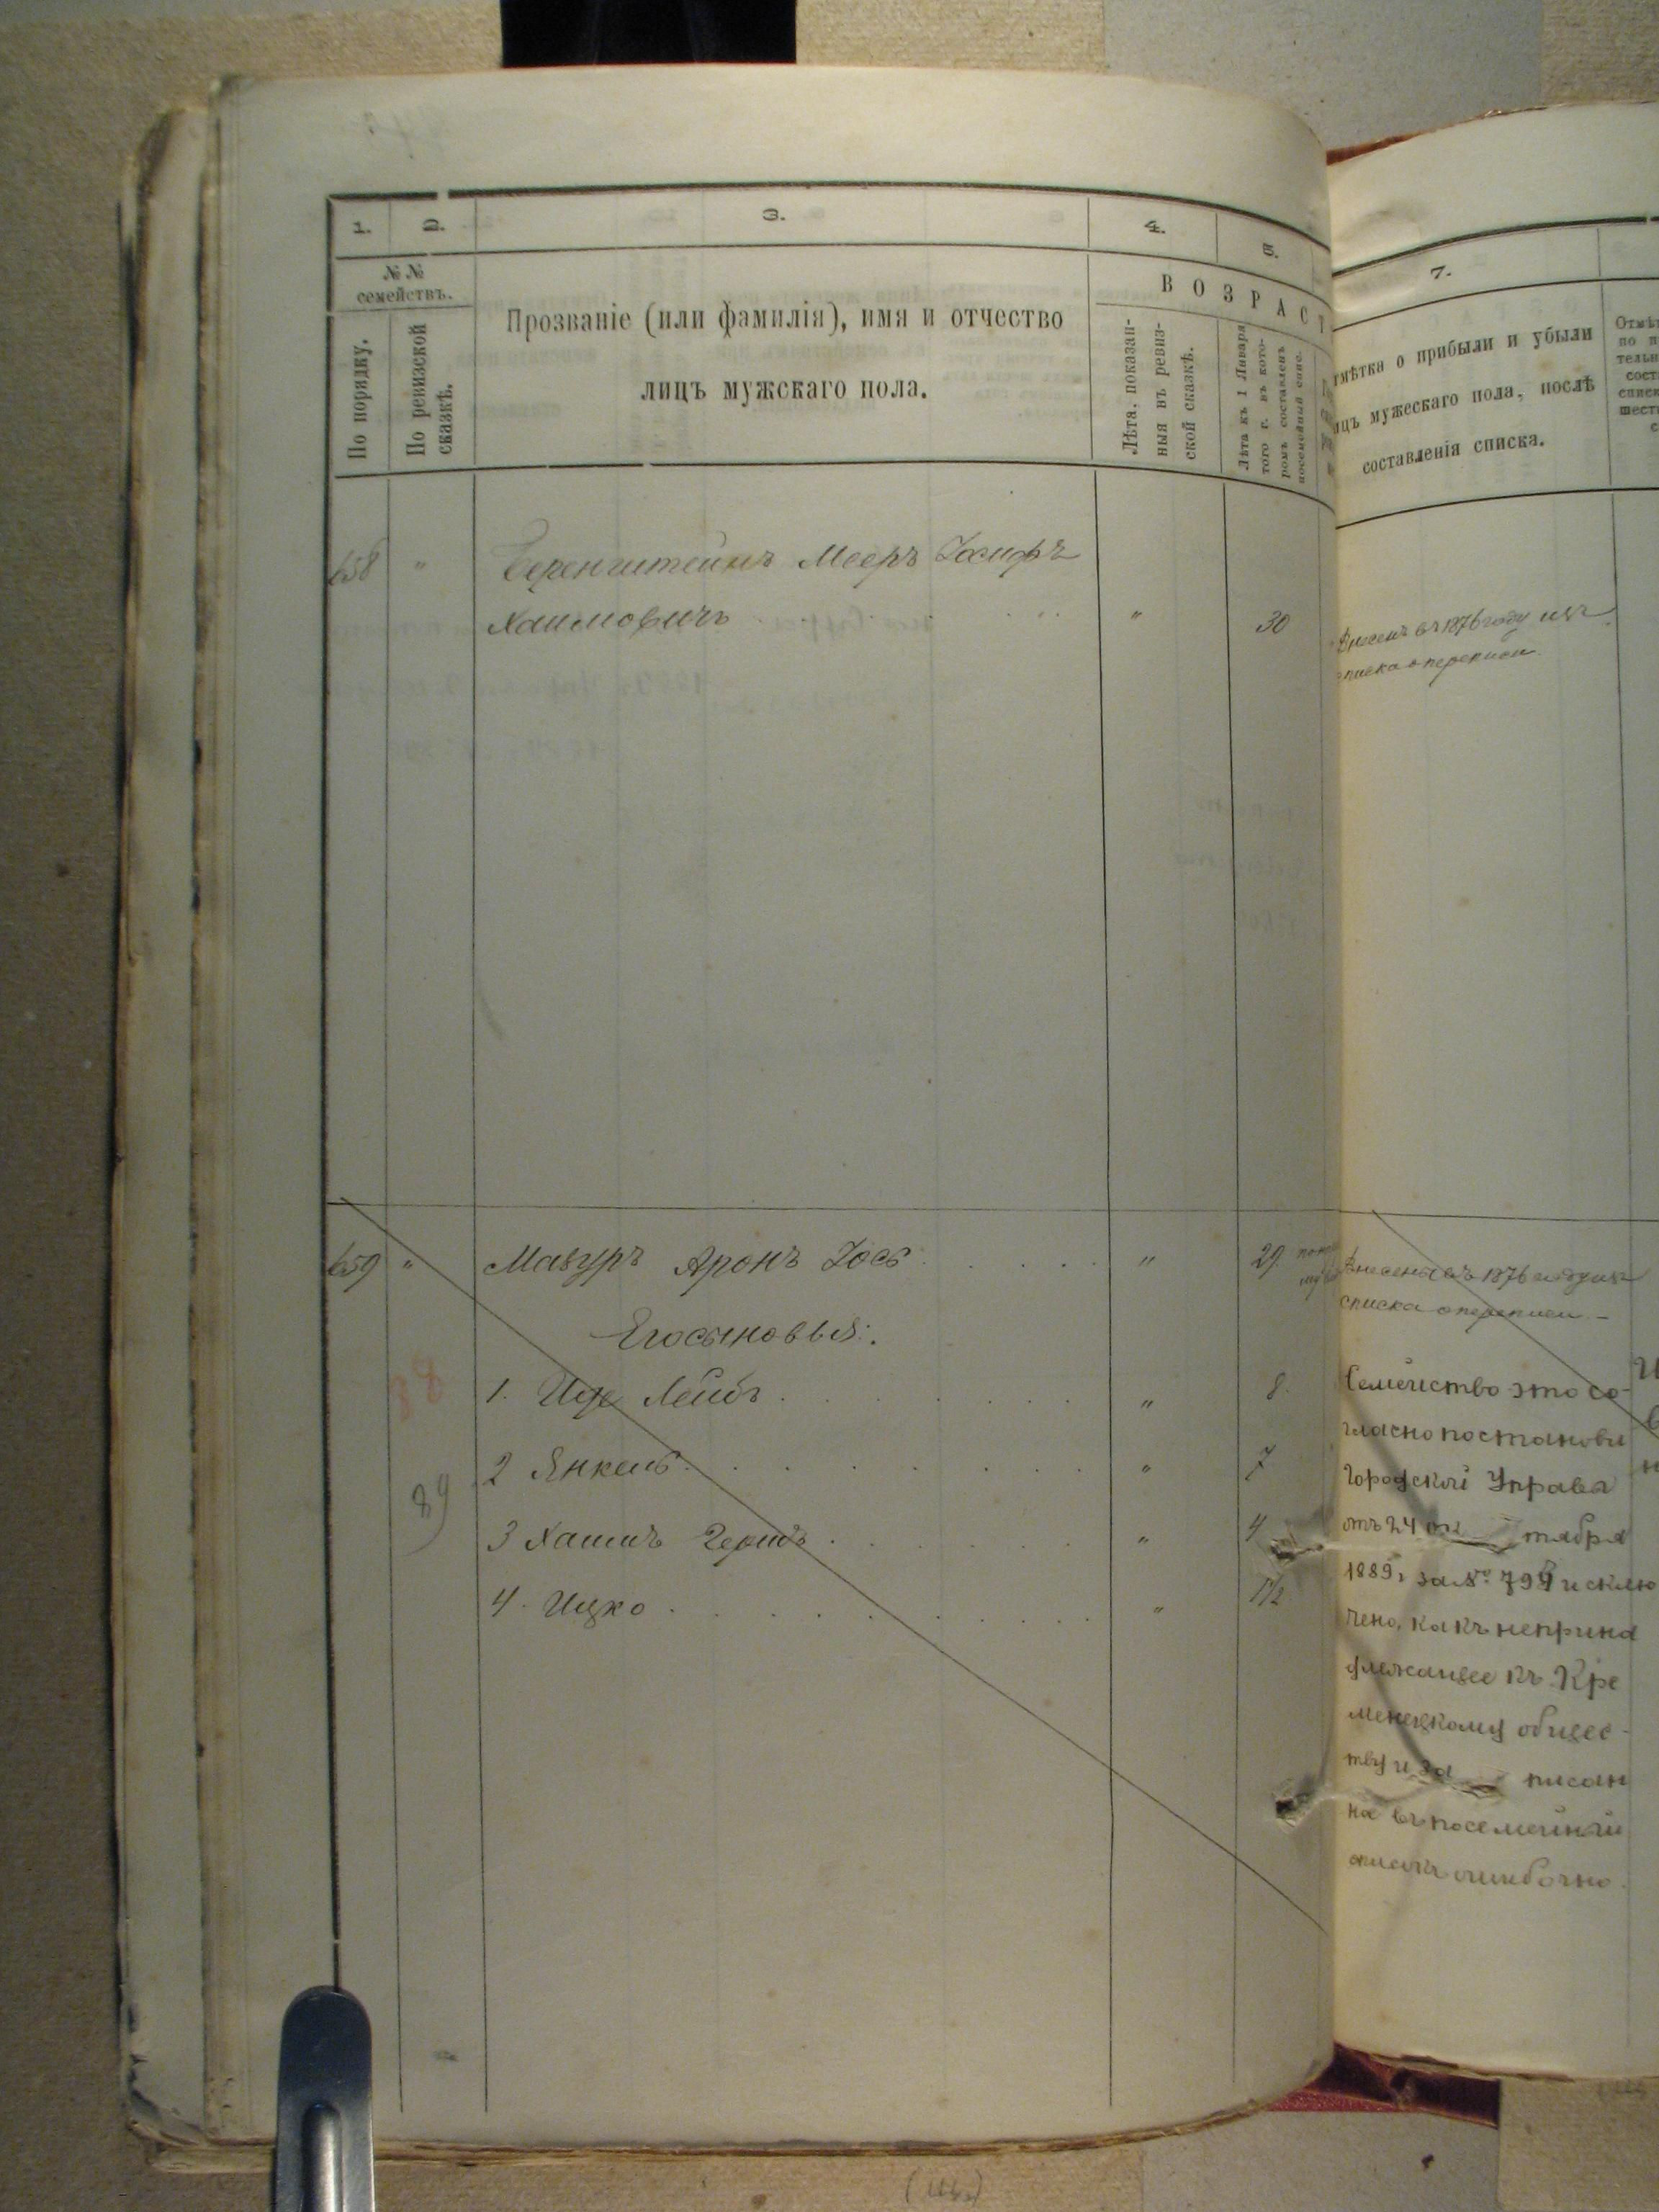 1. 2. 3. 4. 5.
№ № семействъ.
По порядку.
По ревизской сказкѣ.
Прозваніе (или фамилія), имя и отчество
лицъ мужскаго пола.
ВОЗРАСТ
Лѣта, показан-
ныя въ ревиз-
ской сказкѣ.
Лѣта къ 1 Января
того г. въ кото-
ромъ составленъ
посемейный спис.
658 " Беренштейнъ Мееръ Іосифъ
Хаимовичъ " 30
659 " Мазуръ Аронъ Іось " 29
Его сыновья:
1. Лейбъ " 8
2 Янкель " 7
3 Хаимъ Гершъ " 4
4. Ицко " 1½
88
89
7.
мѣтка о прибыли и убыли
ицъ мужескаго пола, послѣ
составленія списка.
Внесенъ въ 1876 году изъ
списка о переписи.
Внесены въ 1876 году изъ
списка о переписи –
Семейство это со-
гласно постановл
Городской Управы
отъ 24 ок тября
1889 г за № 794 исклю
чено, какъ неприна
длежащее къ Кре
менецкому общес-
тву и за писан
на въ посемейный
списокъ ошибочно.